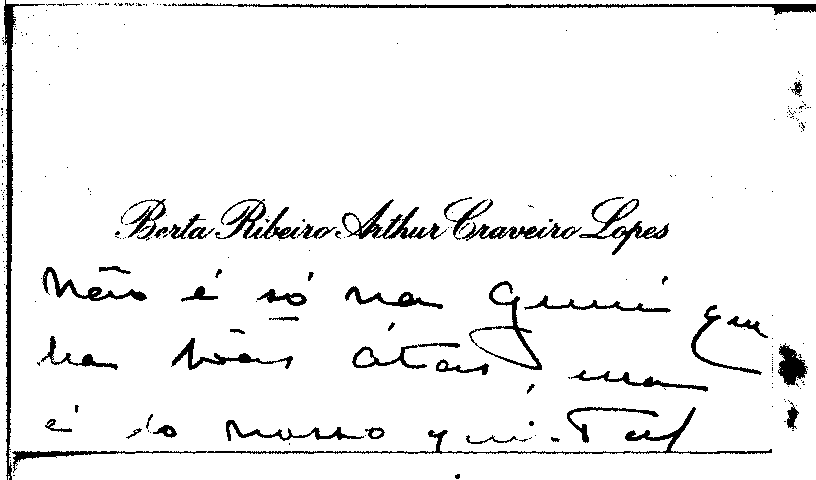 Berta Ribeiro Arthur Craveiro Lopes
Não é só na Guiné que
ha bôas átas,
é do nosso quin-Tal